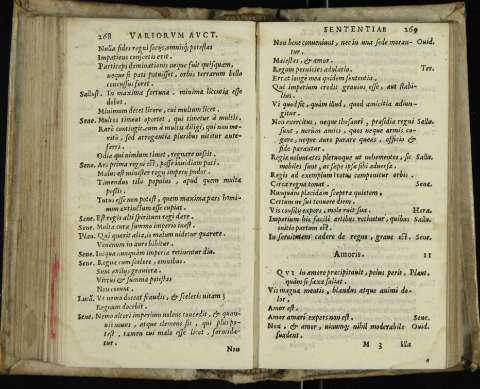 268 VARIORVM AVCT.
Nulla fides regni socijs, omnisq́; potestas
Impatiens consortis erit.
Particeps dominationis neque fuit quisquam,
neque si pati potuisset, orbis terrarum bella
concussus foret.
Sallust. In maxima fortuna, minima licentia esse
debet.
Minimum decet libere, cui multum licet.
Sene. Multos timeat oportet, qui timetur à multis.
Odia qui nimium timet, regnare nescit.
Sene. Ars prima regni est, posse inuidiam pati.
Timendus tibi populus, apud quem multa
potis.
Tutus esse non potest, quem maxima pars homi-
num extinctum esse cupiat.
Sene. Est regis alti spiritum regi dare.
Sene. Multa cura summo imperio inest.
Plau. Qui querit alia, is malum videtur quærere.
Venenum in auro bibitur.
Sene. Iniqua nunquam imperia retinentur diu.
Sene. Regna cum scelere, omnibus
Sunt exiliis grauiora.
Virtus & summa potestas
Non coeunt.
Luca. Vt nemo doceat fraudis, & sceleris vitam?
Regnum docebit.
Sene. Nemo alteri imperium volens concedit, & quan-
uis bonus, atque clemens sit, qui plus po-
test, tamen cui malo esse licet, formida-
tur.
Non
SENTENTIAE 269
Non bene conueniunt, nec in vna sede moran- Ouid.
tur
Maiestas, & amor.
Regum pernicies adulatio. Ter.
Errat longe mea quidem sententia,
Qui imperium credit grauius esse, aut stabi-
lius.
Vi quod fit, quàm illud, quod amicitia adiun-
gitur.
Non exercitus, neque thesauri, præsidia regni Sallu.
sunt, verùm amici: quos neque armis co-
gere, neque auro parare queas, officio &
fide parantur.
Regiæ voluntates plerunque ut vehementes, sic Sallu.
mobiles sunt, ac sæpe ipsæ sibi aduersæ.
Regis ad exemplum totus componitur orbis.
Circa regna tonat. Sene.
Nunquam placidam sceptra quietem,
Certum ue sui tenuere diem.
Vis consilij expers, mole ruit sua. Hora.
Imperium his facilè artibus retinetur, quibus Sallu.
initio partum est.
In seruitutem cadere de regno, graue est. Sene.
Amoris. 11
QVI in amore præcipitauit, peius perit, Plaut.
quàm si saxo saliat.
Vis magna mentis, blandus atque animi ca-
lor.
Amor est.
Amor amari expers non est. Sene.
Nox, & amor, vinumq́; nihil moderabile Ouid.
suadent.
M 3 Illa